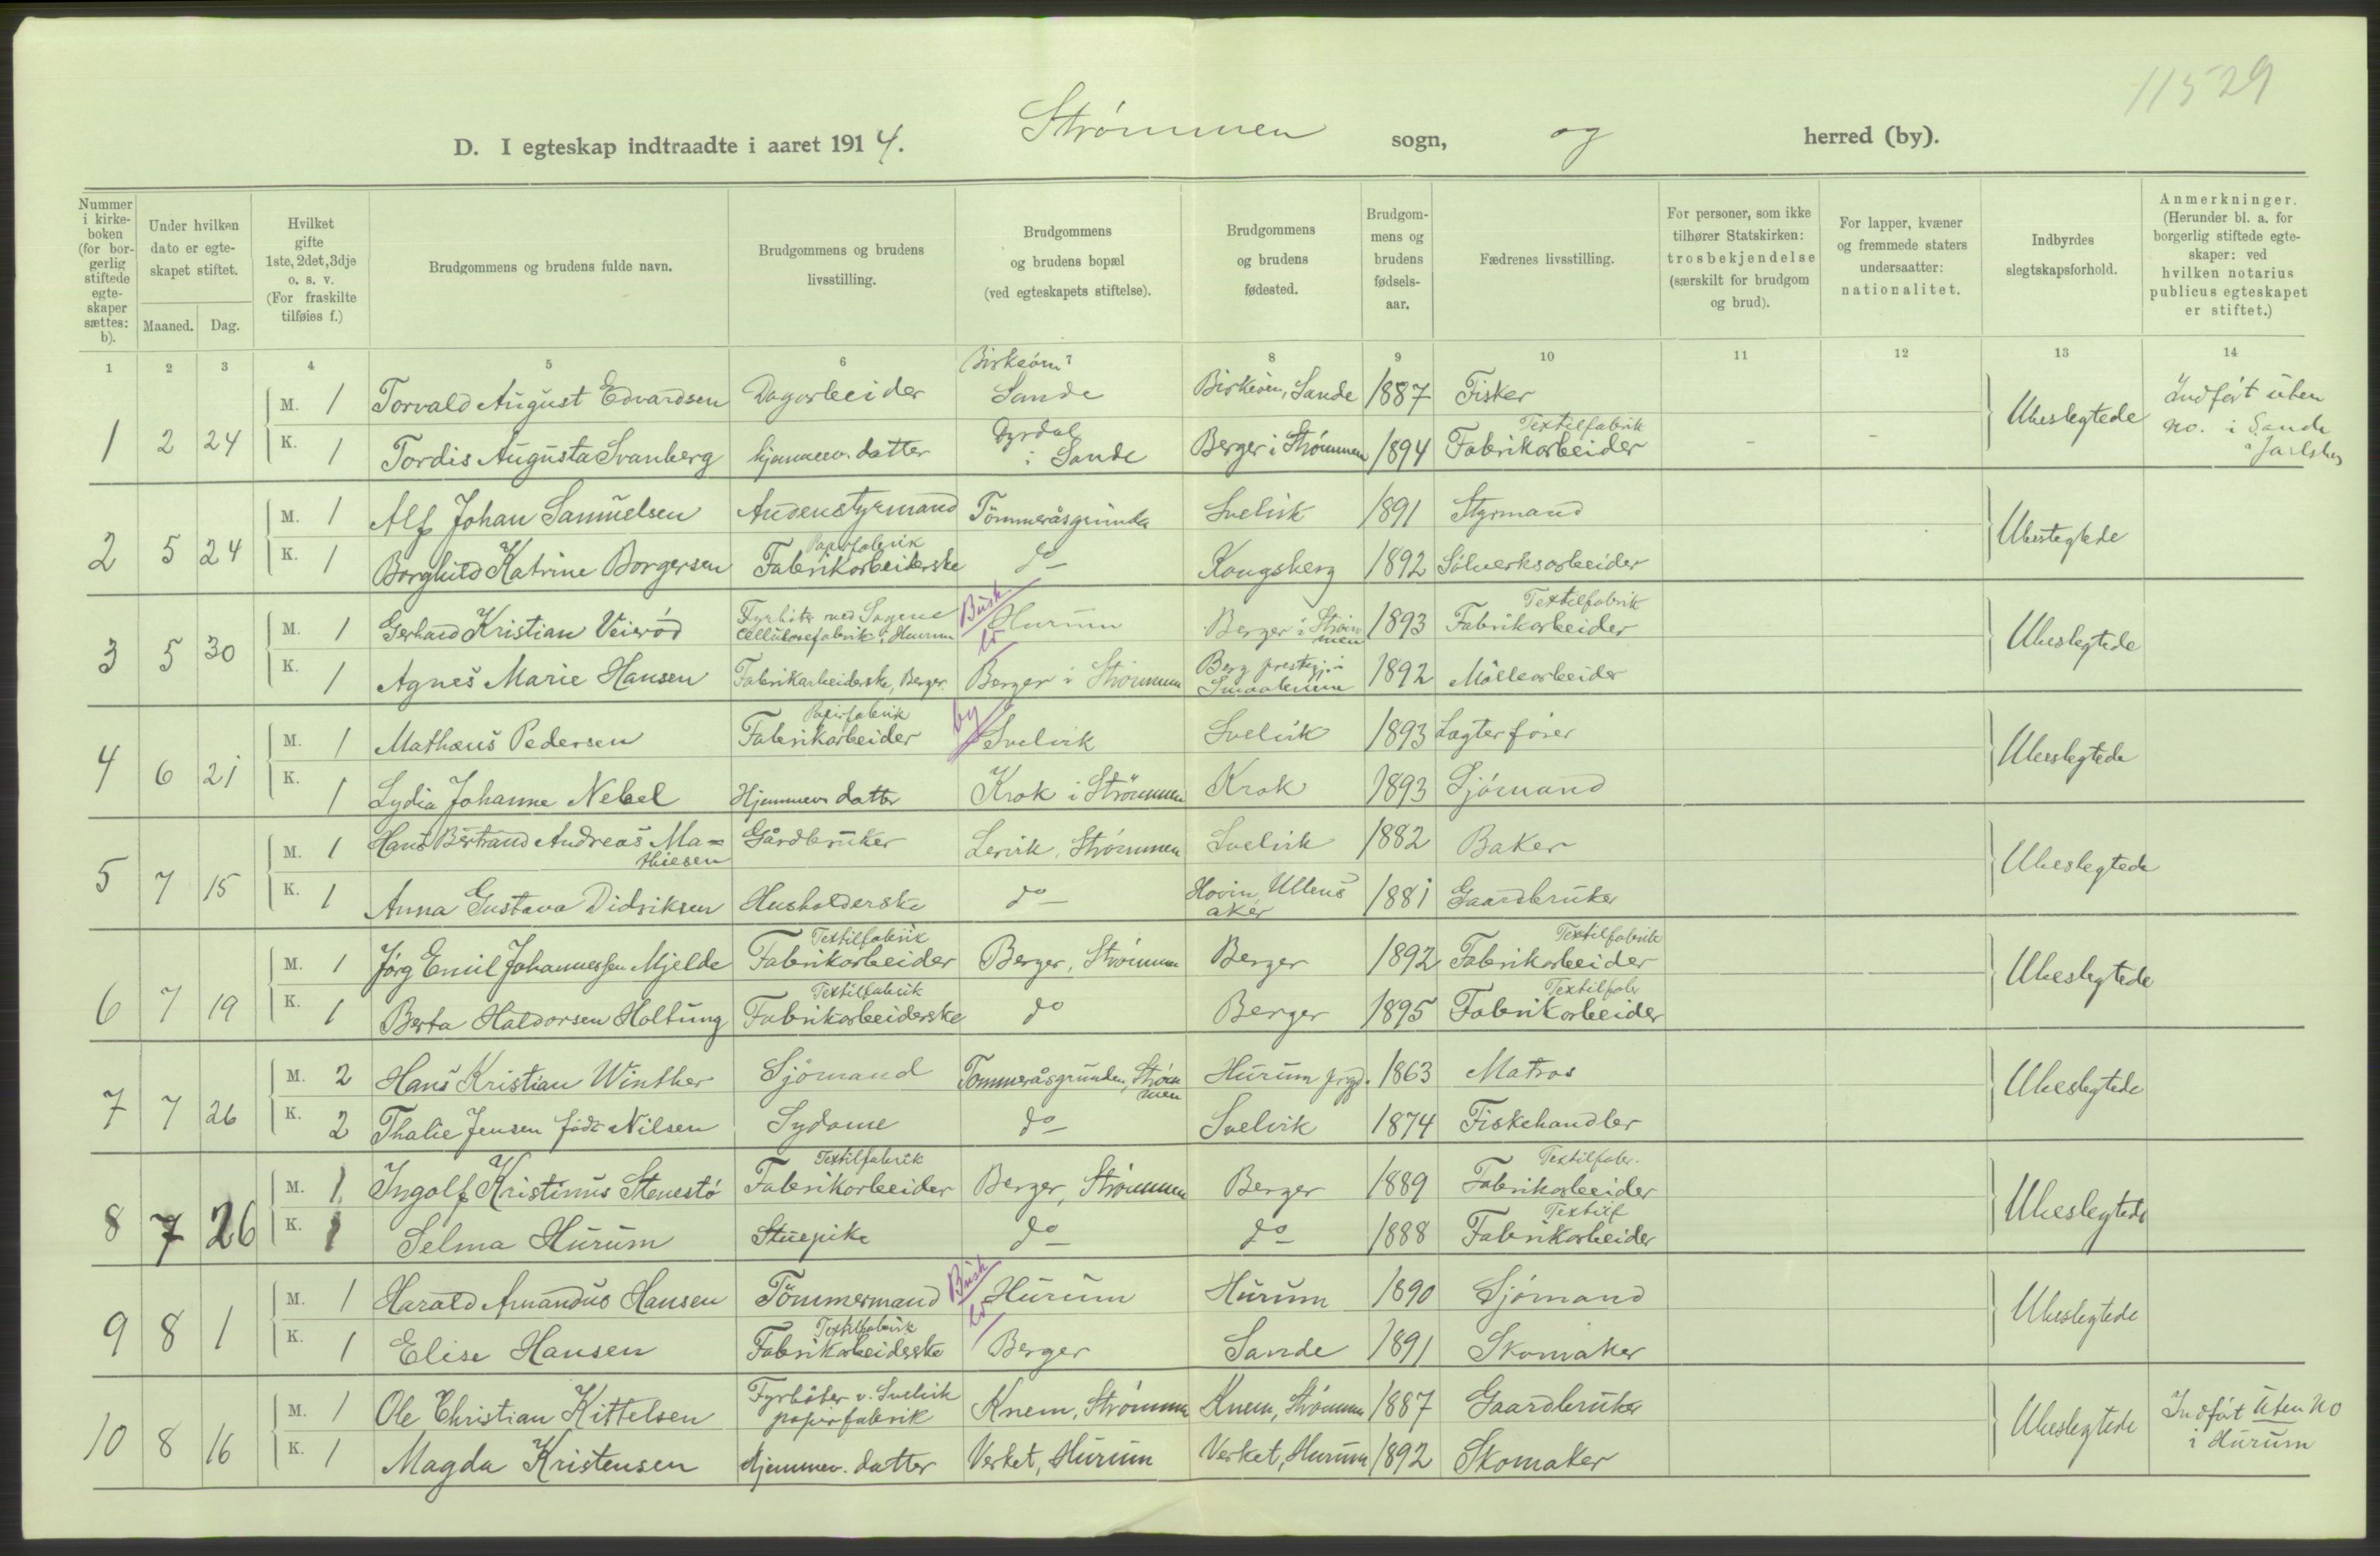 11529
D. I egteskap indtraadte i aaret 1914. Strømmen sogn, og herred (by).
Nummer i kirkeboken (for borgerlig stiftede egteskaper sættes: b).
Under hvilken dato er egteskapet stiftet.
Maaned. Dag.
Hvilket gifte 1ste, 2det, 3dje o. s. v. (For fraskilte tilføies f.)
Brudgommens og brudens fulde navn.
Brudgommens og brudens livsstilling.
Brudgommens og brudens bopæl (ved egteskapets stiftelse).
Brudgommens og brudens fødested.
Brudgommens og brudens fødselsaar.
Fædrenes livsstilling.
For personer, som ikke tilhører Statskirken: trosbekjendelse (særskilt for brudgom og brud).
For lapper, kvæner og fremmede staters undersaatter: nationalitet.
Indbyrdes slegtskapsforhold.
Anmerkninger. (Herunder bl. a. for borgerlig stiftede egteskaper: ved hvilken notarius publicus egteskapet er stiftet.)
1 2 3 4 5 6 8 9 10 11 12 13 14
1 2 24 M. 1 Torvald August Edvardsen Dagarbeider Birkeøen? Sande Birkeøen, Sande 1887 Fisker Ubeslegtede Indført uten no. i Sande i Jarlsberg
K. 1 Tordis Augusta Svanberg hjemmev. datter Dyrdal i Sande Berger i Strømmen 1894 Textilfabrik Fabrikarbeider - -
2 5 24 M. 1 Alf Johan Samuelsen Andenstyrmand Tømmeråsgrunden Svelvik 1891 Styrmand Ubeslegtede
K. 1 Borghild Katrine Borgersen Papirfabrik Fabrikarbeiderske do Kongsberg 1892 Sølverksarbeider
3 5 30 M. 1 Gerhard Kristian Veierød Fyrbøter ved Sagene Cellulosefabrik i Hurum Busk Hurum Berger i Strømmen 1893 Textilfabrik Fabrikarbeider Ubeslegtede
K. 1 Agnes Marie Hansen Fabrikarbeiderske, Berger Berger i Strømmen Berg prestegj. i Smaalenene 1892 Møllearbeider
4 6 21 M. 1 Mathæus Pedersen Papirfabrik Fabrikarbeider by Svelvik Svelvik 1893 Lægterfører Ubeslegtede
K. 1 Lydia Johanne Nebel Hjemmev datter Krok i Strömmen Krok 1893 Sjømand
5 7 15 M. 1 Hans Bertrand Andreas Mathiesen Gårdbruker Lervik, Strømmen Svelvik 1882 Baker Ubeslegtede
K. 1 Anna Gustava Didriksen Husholderske do Hovin, Ullensaker 1881 Gaardbruker
6 7 19 M. 1 Jørg Emil Johannessen Mjelde Textilfabrik Fabrikarbeider Berger, Strømmen Berger 1892 Textilfabrik Fabrikarbeider Ubeslegtede
K. 1 Berta Haldorsen Holtung Textilfabrik Fabrikarbeiderske do Berger 1895 Textilfabr Fabrikarbeider
7 7 26 M. 2 Hans Kristian Winther Sjømand Tømmeråsgrunden, Strømmen Hurum prgd. 1863 Matros Ubeslegtede
K. 2 Thalie Jensen født Nilsen Sydame do Svelvik 1874 Fiskehandler
8 7 26 M. 1 Ingolf Kristinus Stenestø Textilfabrik Fabrikarbeider Berger, Strømmen Berger 1889 Textilfabr. Fabrikarbeider Ubeslegtede
K. 1 Selma Hurum Stuepike do do 1888 Textilf Fabrikarbeider
9 8 1 M. 1 Harald Amandus Hansen Tömmermand Busk Hurum Hurum 1890 Sjømand Ubeslegtede
K. 1 Elise Hansen Textilfabrik Fabrikarbeiderske Berger Sande 1891 Skomaker
10 8 16 M. 1 Ole Christian Kittelsen Fyrbøter v. Svelvik papirfabrik Knem, Strømmen Knem, Strømmen 1887 Gaardbruker Ubeslegtede Indført uten no i Hurum
K. 1 Magda Kristensen Hjemmev. datter Verket, Hurum Verket, Hurum 1892 Skomaker